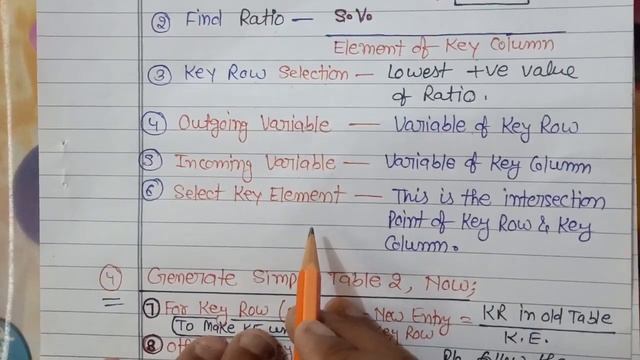 ② Find Ratio — S.V.
Element of Key Column
③ Key Row Selection — Lowest +ve value
of Ratio.
④ Outgoing Variable — Variable of Key Row
⑤ Incoming Variable — Variable of Key Column
⑥ Select Key Element — This is the intersection
Point of Key Row & Key
Column.
④ Generate Simp Table 2, Now;
⑦ For Key Row ( New Entry = KR in old Table
K.E.
(To Make KE Key Row
⑧